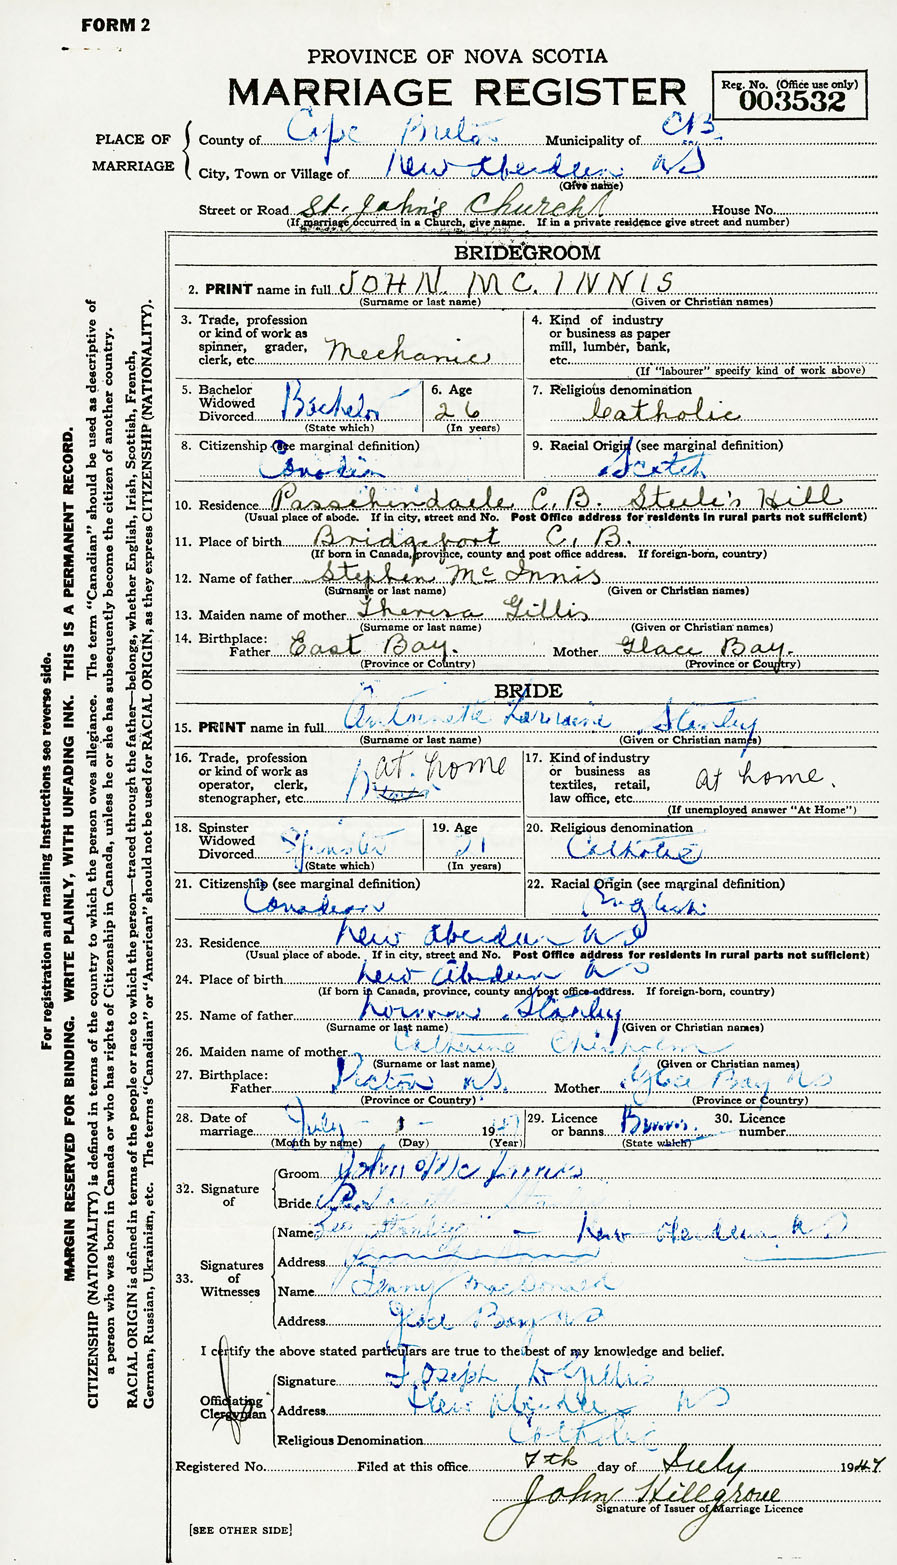 FORM 2
PROVINCE OF NOVA SCOTIA
MARRIAGE REGISTER
Reg. No. (Office use only)
003532
PLACE OF MARRIAGE
County of Cape Breton Municipality of C.B.
City, Town or Village of New Aberdeen NS
(Give name)
Street or Road St. John's Church House No.
(If marriage occurred in a Church, give name. If in a private residence give street and number)
BRIDEGROOM
2. PRINT name in full JOHN MC. INNIS
(Surname or last name) (Given or Christian names)
3. Trade, profession or kind of work as spinner, grader, clerk, etc. Mechanic
4. Kind of industry or business as paper mill, lumber, bank, etc.
(If "labourer" specify kind of work above)
5. Bachelor Widowed Divorced Bachelor
(State which)
6. Age 26
(In years)
7. Religious denomination Catholic
8. Citizenship (See marginal definition) Canadian
9. Racial Origin (see marginal definition) Scotch
10. Residence Passchindaele C.B. Steele's Hill
(Usual place of abode. If in city, street and No. Post Office address for residents in rural parts not sufficient)
11. Place of birth Bridgeport C.B.
(If born in Canada, province, county and post office address. If foreign-born, country)
12. Name of father Stephen Mc Innis
(Surname or last name) (Given or Christian names)
13. Maiden name of mother Theresa Gillis
(Surname or last name) (Given or Christian names)
14. Birthplace: Father East Bay. Mother Glace Bay.
(Province or Country) (Province or Country)
BRIDE
15. PRINT name in full Antoinette Lorraine Stanley
(Surname or last name) (Given or Christian names)
16. Trade, profession or kind of work as operator, clerk, stenographer, etc. at home
17. Kind of industry or business as textiles, retail, law office, etc. at home.
(If unemployed answer "At Home")
18. Spinster Widowed Divorced Spinster
(State which)
19. Age 21
(In years)
20. Religious denomination Catholic
21. Citizenship (see marginal definition) Canadian
22. Racial Origin (see marginal definition) English
23. Residence New Aberdeen NS
(Usual place of abode. If in city, street and No. Post Office address for residents in rural parts not sufficient)
24. Place of birth New Aberdeen NS
(If born in Canada, province, county and post office address. If foreign-born, country)
25. Name of father Norman Stanley
(Surname or last name) (Given or Christian names)
26. Maiden name of mother Catherine Chisholm
(Surname or last name) (Given or Christian names)
27. Birthplace: Father Pictou NS. Mother Glace Bay NS
(Province or Country) (Province or Country)
28. Date of marriage July 1 1947
(Month by name) (Day) (Year)
29. Licence or banns Banns.
(State which)
30. Licence number
32. Signature of
Groom John Mc Innis
Bride
33. Signatures of Witnesses
Name Leo Stanley - New Aberdeen NS
Address
Name Jenny MacDonald
Address Glace Bay NS
I certify the above stated particulars are true to the best of my knowledge and belief.
Officiating Clergyman
Signature Joseph D Gillis
Address New Aberdeen NS
Religious Denomination Catholic
Registered No. Filed at this office 7th day of July 1947
John Hillgrove
Signature of Issuer of Marriage Licence
[SEE OTHER SIDE]
For registration and mailing instructions see reverse side.
MARGIN RESERVED FOR BINDING. WRITE PLAINLY, WITH UNFADING INK. THIS IS A PERMANENT RECORD.
CITIZENSHIP (NATIONALITY) is defined in terms of the country to which the person owes allegiance. The term "Canadian" should be used as descriptive of
a person who was born in Canada or who has rights of Citizenship in Canada, unless he or she has subsequently become the citizen of another country.
RACIAL ORIGIN is defined in terms of the people or race to which the person—traced through the father—belongs, whether English, Irish, Scottish, French,
German, Russian, Ukrainian, etc. The terms "Canadian" or "American" should not be used for RACIAL ORIGIN, as they express CITIZENSHIP (NATIONALITY).